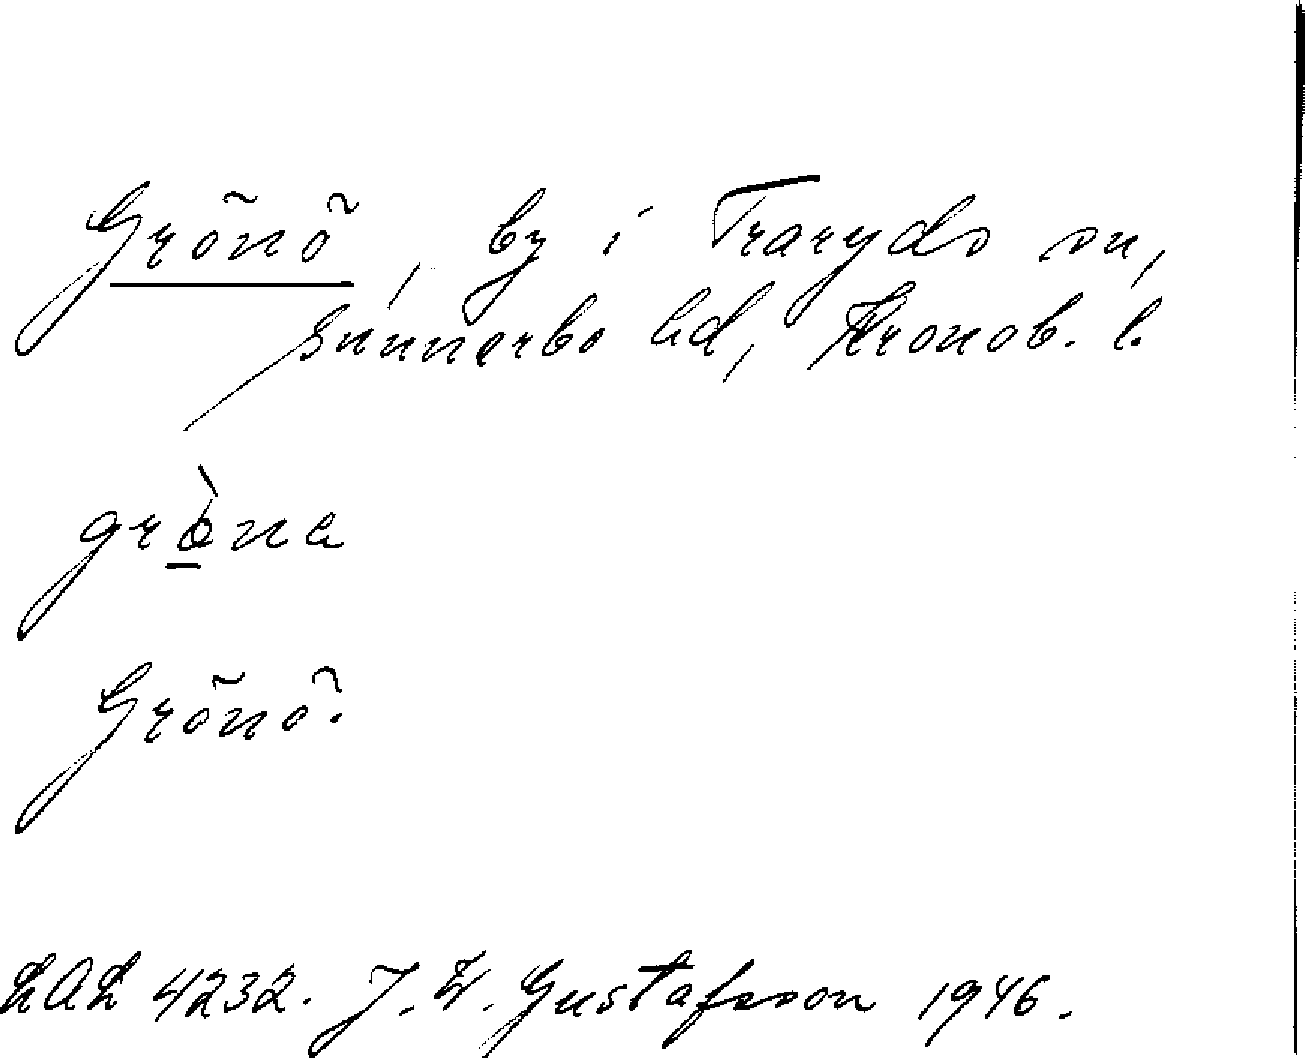 Grönö, by i Traryds sn,
Sunnerbo hd, Kronob. l.
grò̲na
Grönö.
LAL 4232. J. W. Gustafsson 1946.